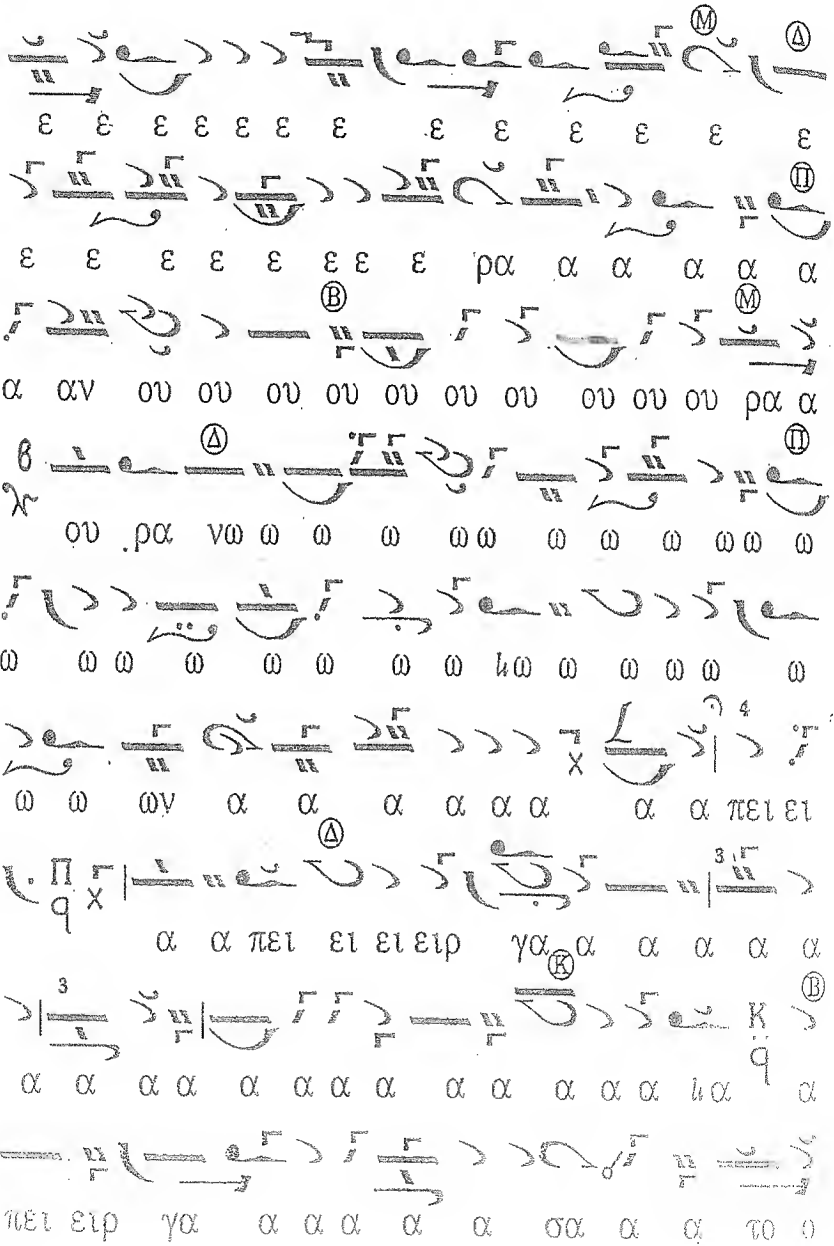 Ⓜ Ⓓ
ε ε ε ε ε ε ε ε ε ε ε ε ε
Ⓟ
ε ε ε ε ε ε ε ε ρα α α α α α
Ⓑ Ⓜ
α αν ου ου ου ου ου ου ου ου ου ου ρα α
Δ Π
ου ρα νω ω ω ω ω ω ω ω ω ω ω ω
ω ω ω ω ω ω ω ω ω ω ω ω ω ω
4
ω ω ων α α α α α α α α πει ει
Δ
Π 3
α α πει ει ει ειρ γα α α α α α
Κ Β
3 Κ
α α α α α α α α α α α α α α α
πει ειρ γα α α α α α σα α α το ο